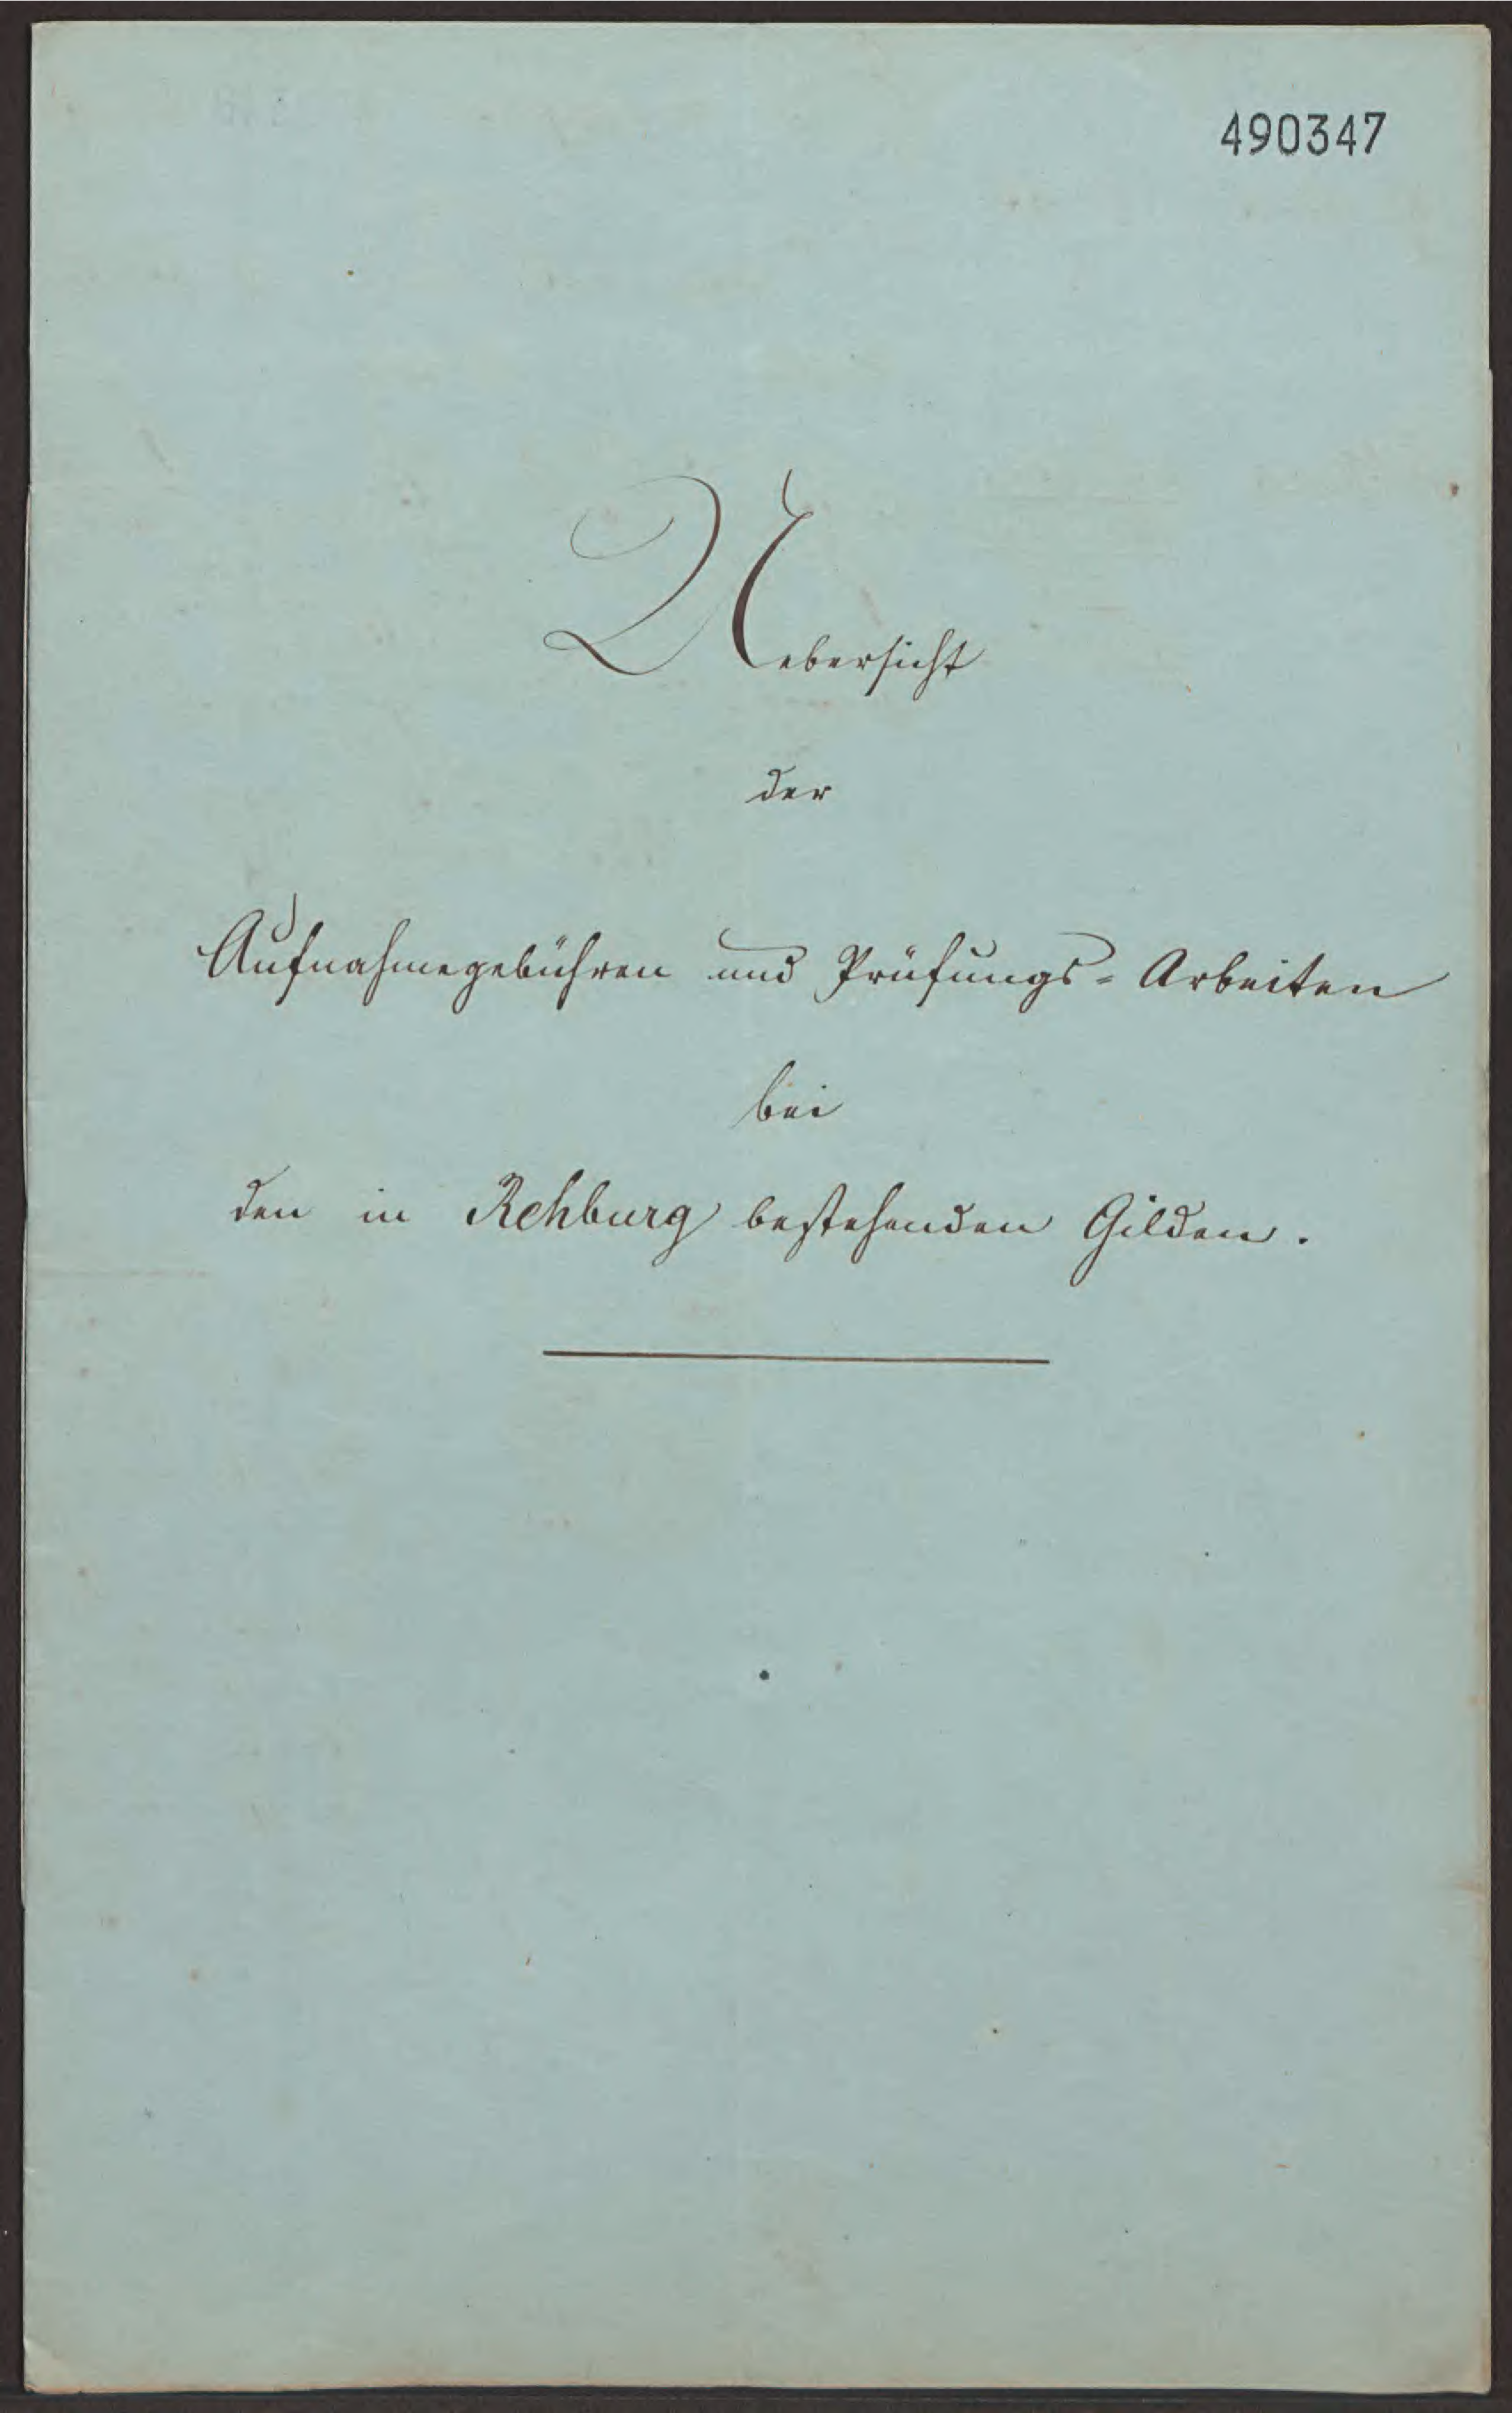 490347
Uebersicht
der
Aufnahmegebühren und Prüfungs-Arbeiten
bei
den in Rehburg bestehenden Gilden.